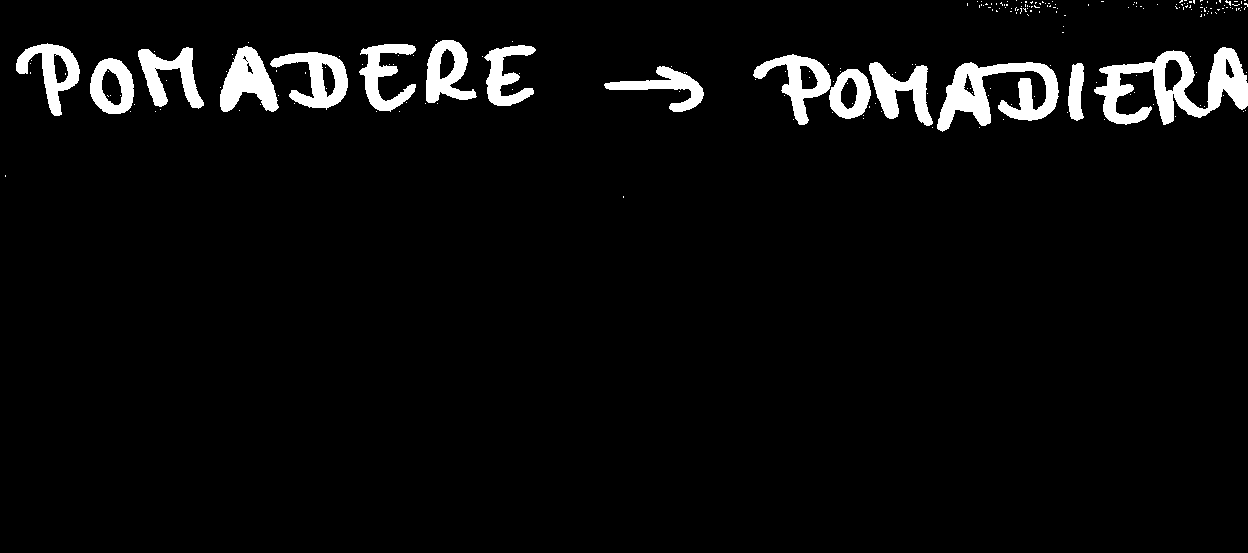 POMADERE → POMADIERA